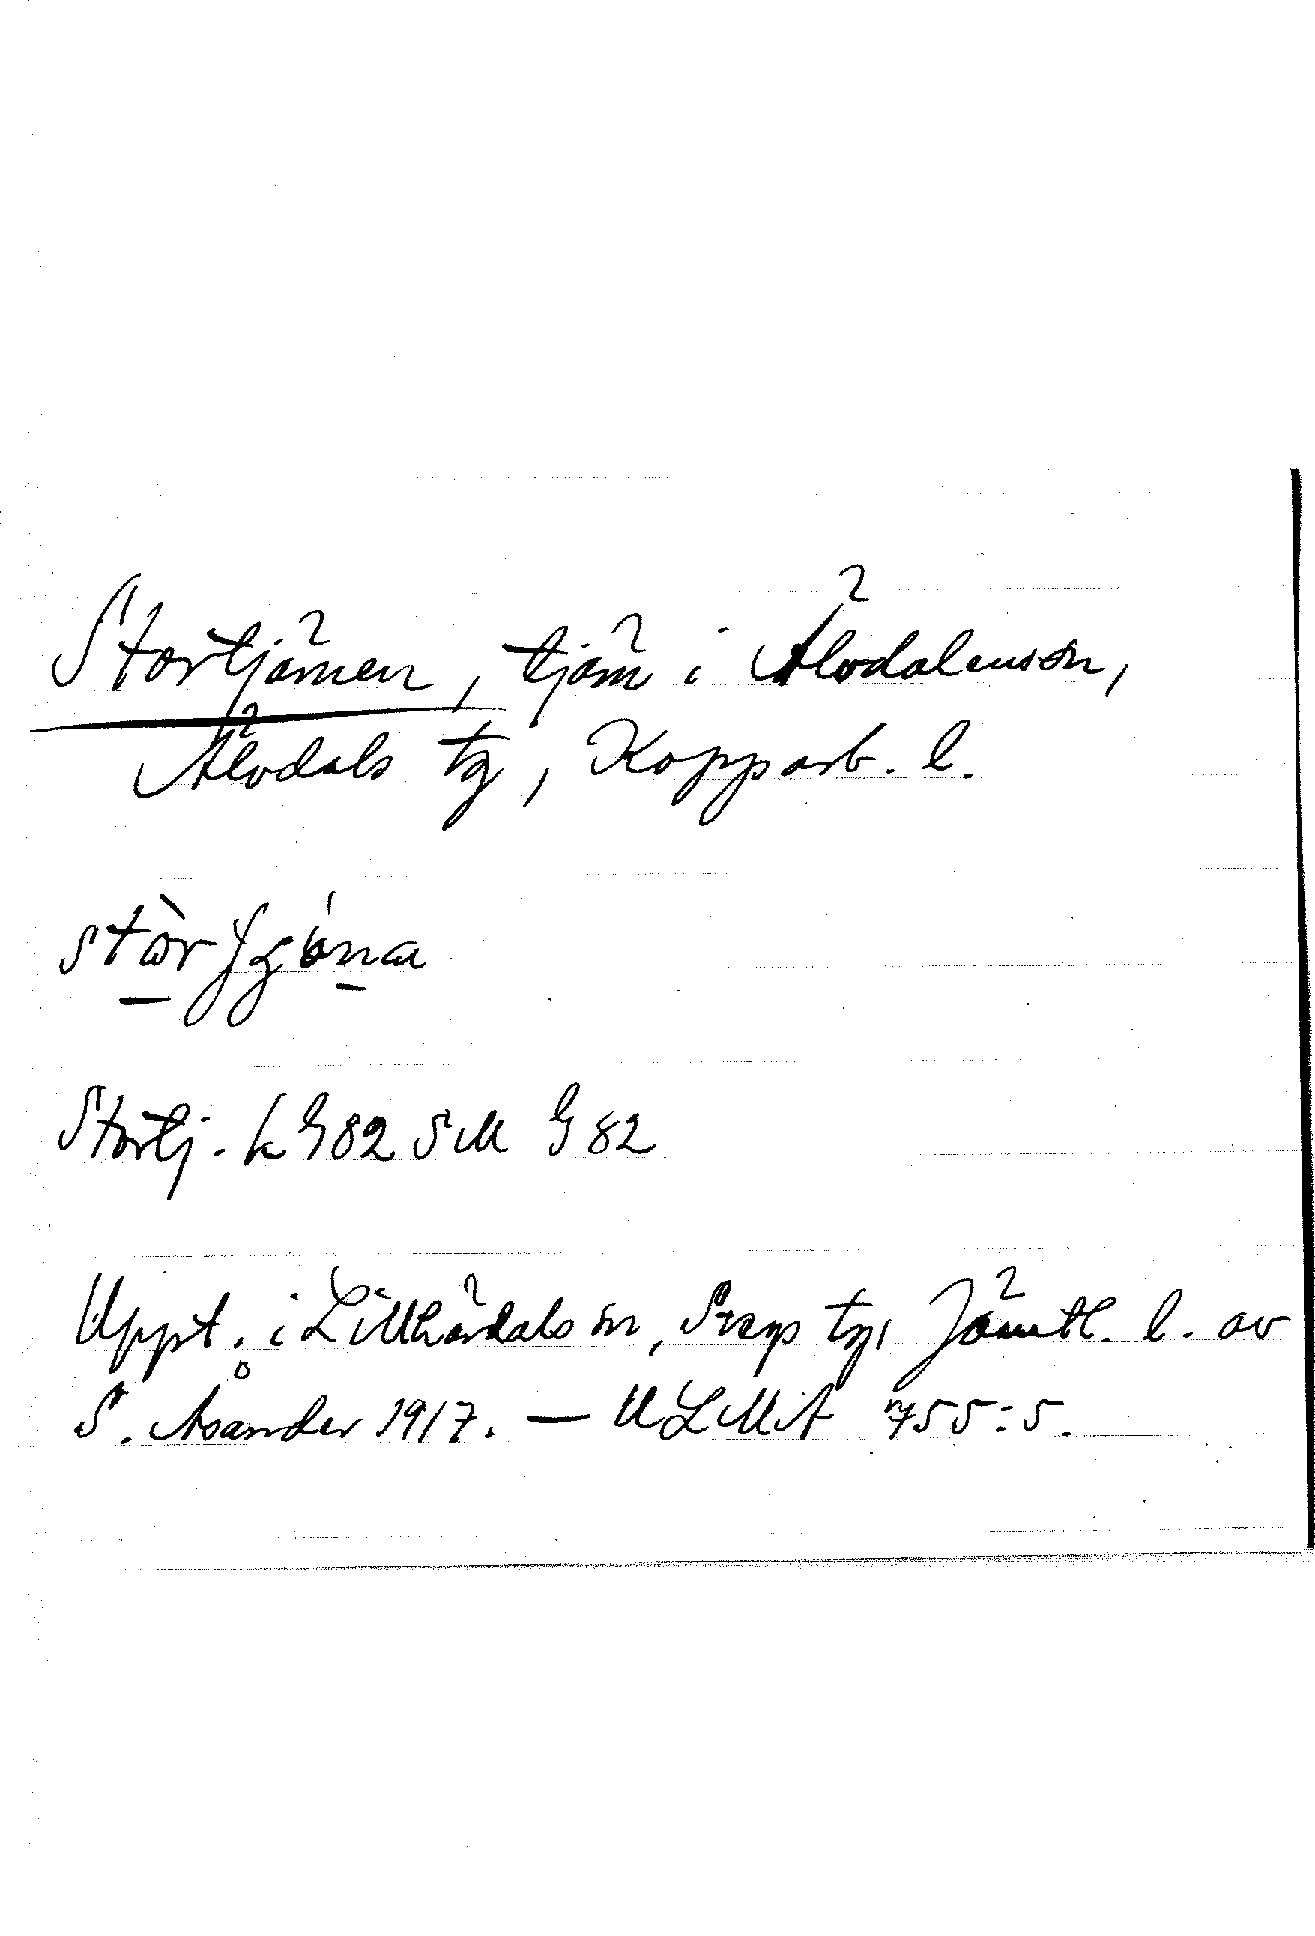 Stortjärnen, tjärn i Älvdalens sn,
Älvdals tg, Kopparb. l.
stòrʃʒóna
Stortj. k G82 SM G 82
Uppt. i Lillhärdals sn, Svegs tg, Jämtl. l. av
S. Åsander 1917. — ULMA 755:5.